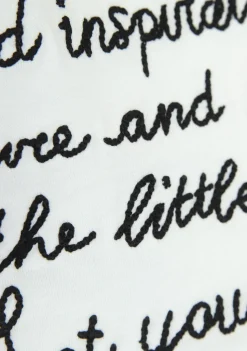 d inspirat
ure and
the little
hat you